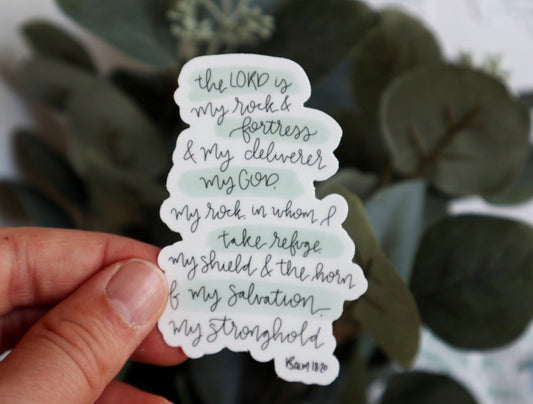 the LORD is
my rock &
fortress
& my deliverer
my GOD.
my rock in whom I
take refuge.
my shield & the horn
of my salvation
my stronghold
Psalm 18:20